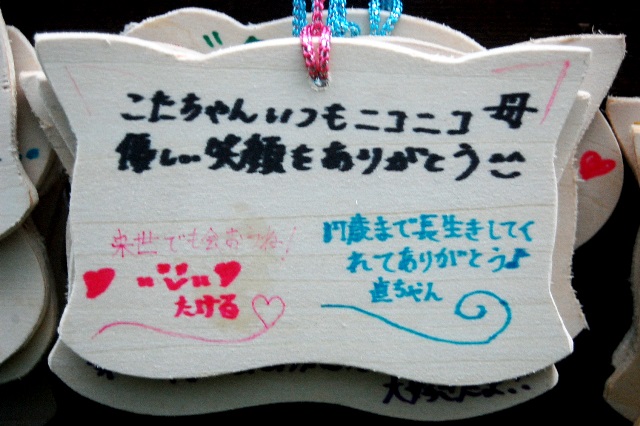 こたちゃんいつもニコニコ 母
優しい笑顔をありがとう
来世でも会おうね!
たける
17歳まで長生きしてく
れてありがとう♪
直ちゃん